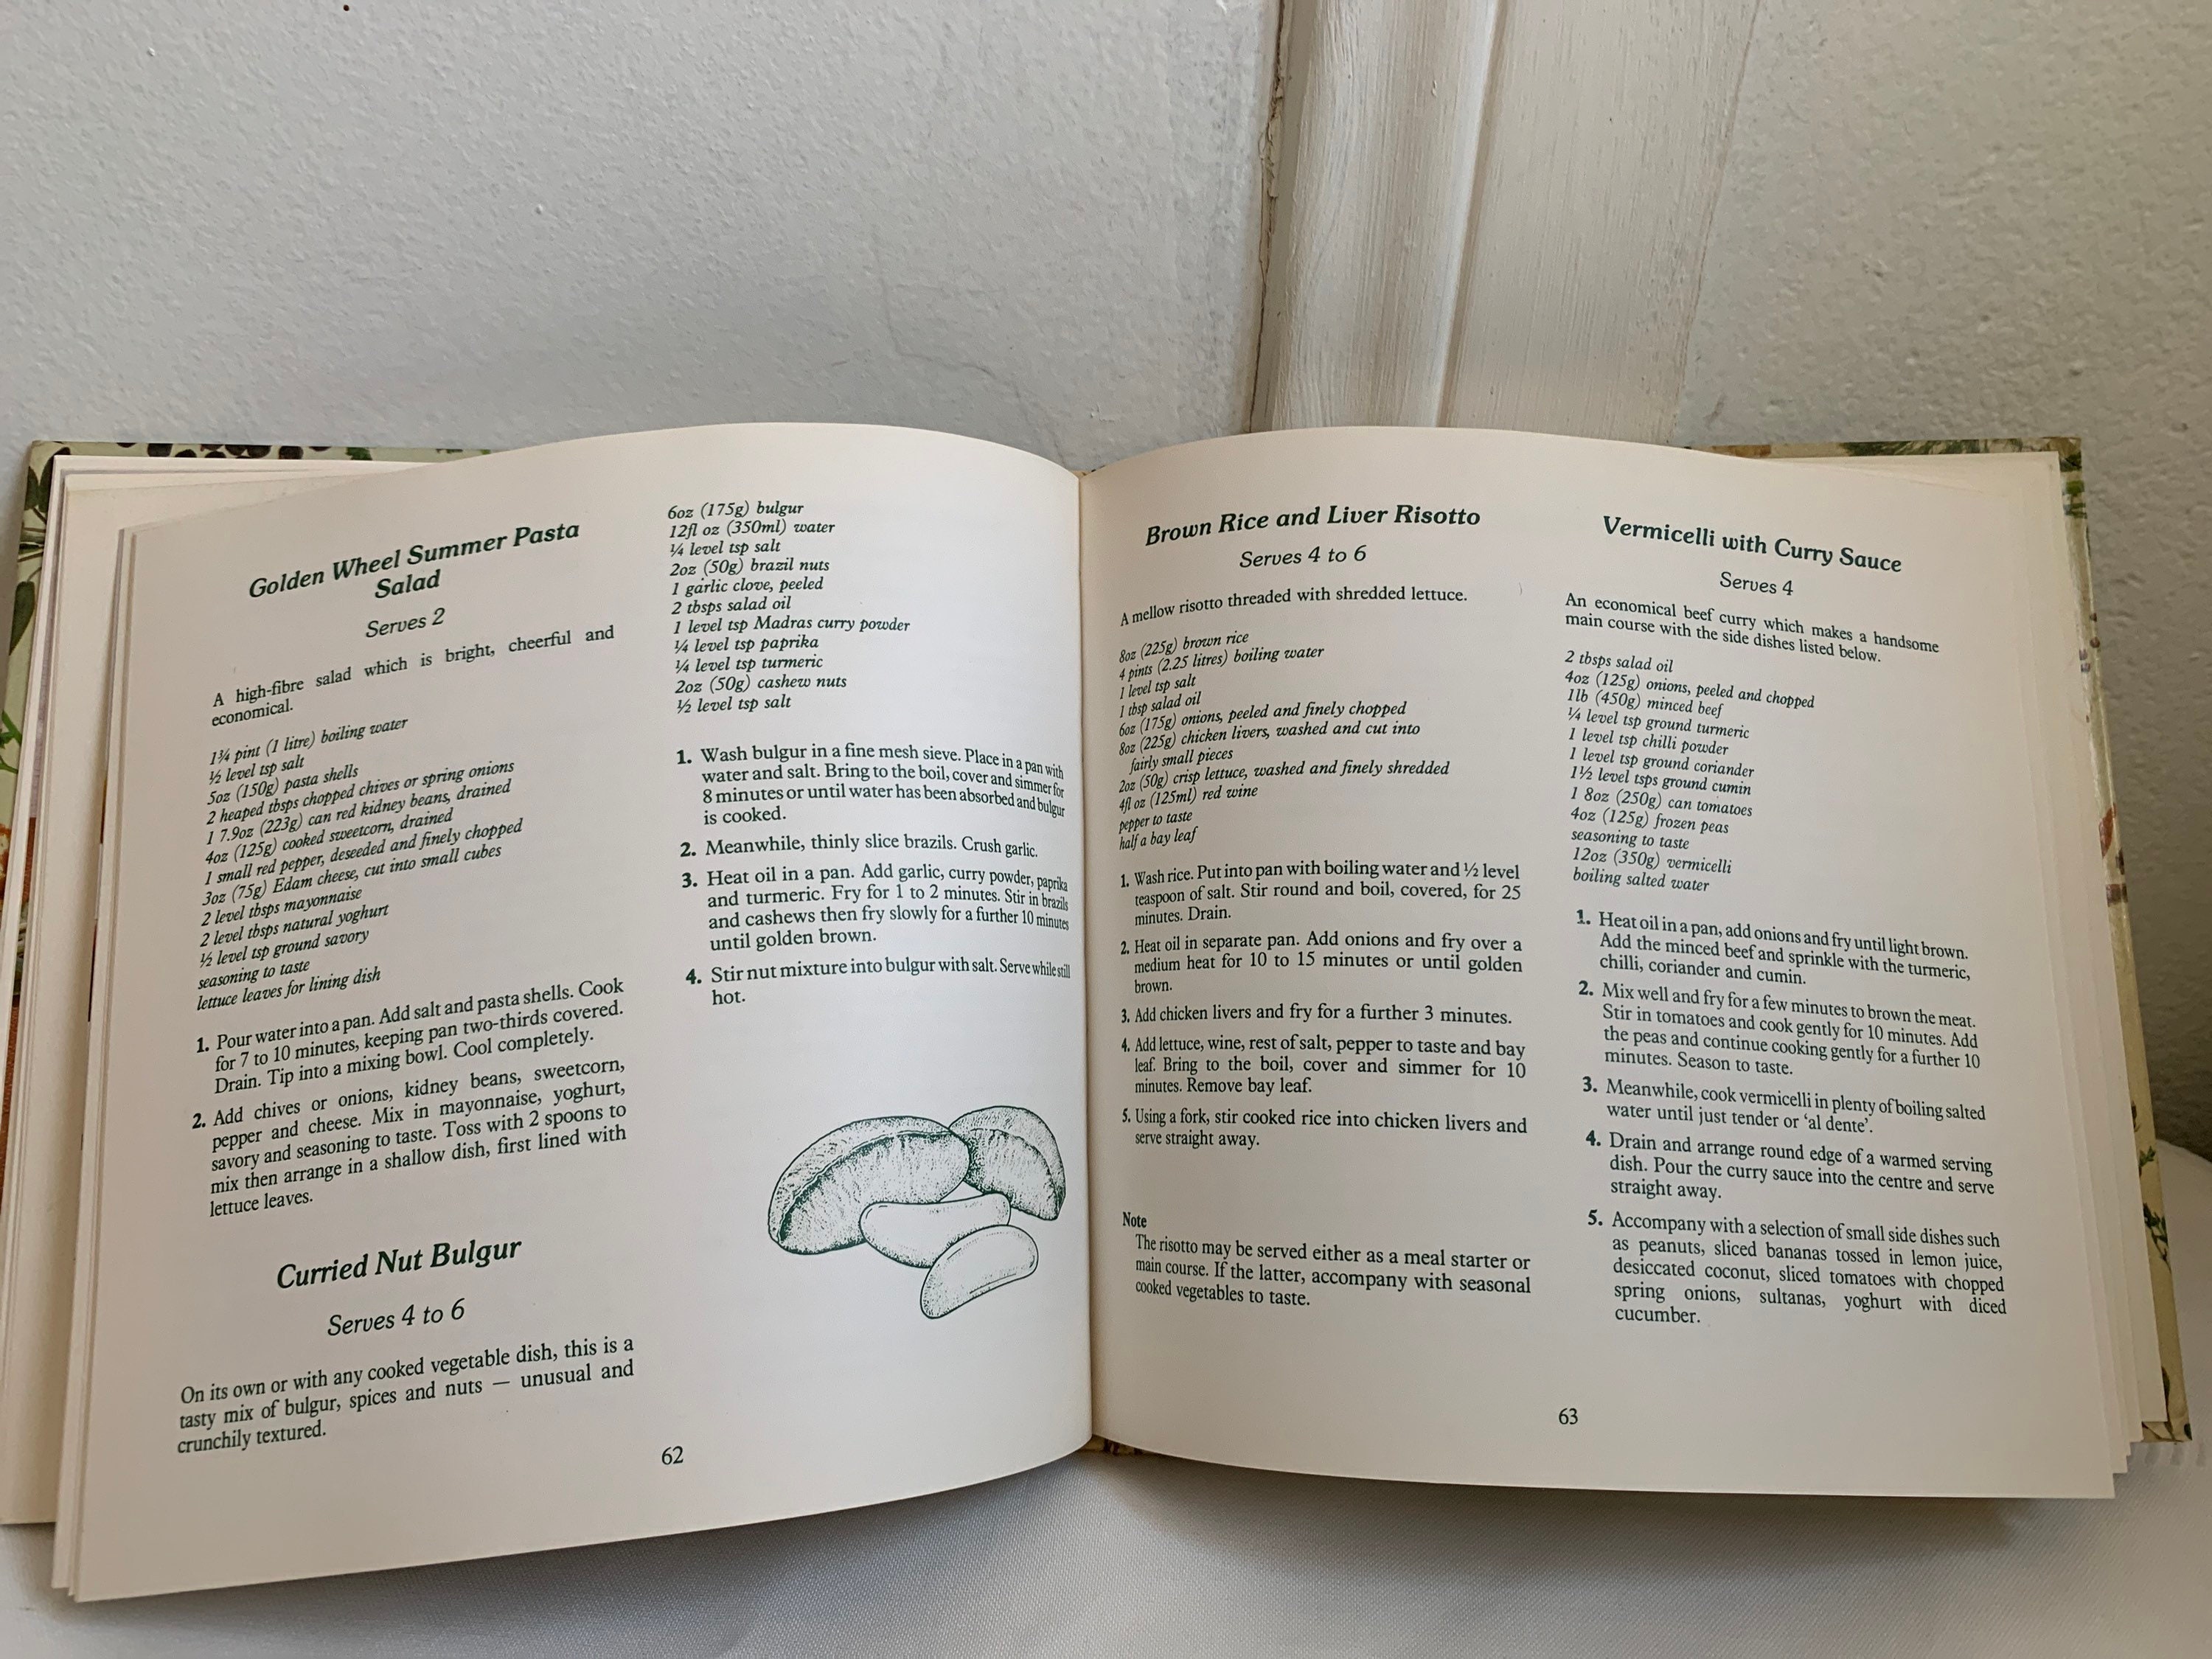 Golden Wheel Summer Pasta
Salad
Serves 2
A high-fibre salad which is bright, cheerful and
economical.
1¾ pint (1 litre) boiling water
½ level tsp salt
5oz (150g) pasta shells
2 heaped tbsps chopped chives or spring onions
1 7.9oz (223g) can red kidney beans, drained
4oz (125g) cooked sweetcorn, drained
1 small red pepper, deseeded and finely chopped
3oz (75g) Edam cheese, cut into small cubes
2 level tbsps mayonnaise
2 level tbsps natural yoghurt
½ level tsp ground savory
seasoning to taste
lettuce leaves for lining dish
1. Pour water into a pan. Add salt and pasta shells. Cook
for 7 to 10 minutes, keeping pan two-thirds covered.
Drain. Tip into a mixing bowl. Cool completely.
2. Add chives or onions, kidney beans, sweetcorn,
pepper and cheese. Mix in mayonnaise, yoghurt,
savory and seasoning to taste. Toss with 2 spoons to
mix then arrange in a shallow dish, first lined with
lettuce leaves.
Curried Nut Bulgur
Serves 4 to 6
On its own or with any cooked vegetable dish, this is a
tasty mix of bulgur, spices and nuts — unusual and
crunchily textured.
6oz (175g) bulgur
12fl oz (350ml) water
¼ level tsp salt
2oz (50g) brazil nuts
1 garlic clove, peeled
2 tbsps salad oil
1 level tsp Madras curry powder
¼ level tsp paprika
¼ level tsp turmeric
2oz (50g) cashew nuts
½ level tsp salt
1. Wash bulgur in a fine mesh sieve. Place in a pan with
water and salt. Bring to the boil, cover and simmer for
8 minutes or until water has been absorbed and bulgur
is cooked.
2. Meanwhile, thinly slice brazils. Crush garlic.
3. Heat oil in a pan. Add garlic, curry powder, paprika
and turmeric. Fry for 1 to 2 minutes. Stir in brazils
and cashews then fry slowly for a further 10 minutes
until golden brown.
4. Stir nut mixture into bulgur with salt. Serve while still
hot.
62
Brown Rice and Liver Risotto
Serves 4 to 6
A mellow risotto threaded with shredded lettuce.
8oz (225g) brown rice
4 pints (2.25 litres) boiling water
1 level tsp salt
1 tbsp salad oil
6oz (175g) onions, peeled and finely chopped
8oz (225g) chicken livers, washed and cut into
fairly small pieces
2oz (50g) crisp lettuce, washed and finely shredded
4fl oz (125ml) red wine
pepper to taste
half a bay leaf
1. Wash rice. Put into pan with boiling water and ½ level
teaspoon of salt. Stir round and boil, covered, for 25
minutes. Drain.
2. Heat oil in separate pan. Add onions and fry over a
medium heat for 10 to 15 minutes or until golden
brown.
3. Add chicken livers and fry for a further 3 minutes.
4. Add lettuce, wine, rest of salt, pepper to taste and bay
leaf. Bring to the boil, cover and simmer for 10
minutes. Remove bay leaf.
5. Using a fork, stir cooked rice into chicken livers and
serve straight away.
Note
The risotto may be served either as a meal starter or
main course. If the latter, accompany with seasonal
cooked vegetables to taste.
Vermicelli with Curry Sauce
Serves 4
An economical beef curry which makes a handsome
main course with the side dishes listed below.
2 tbsps salad oil
4oz (125g) onions, peeled and chopped
1lb (450g) minced beef
¼ level tsp ground turmeric
1 level tsp chilli powder
1 level tsp ground coriander
1½ level tsps ground cumin
1 8oz (250g) can tomatoes
4oz (125g) frozen peas
seasoning to taste
12oz (350g) vermicelli
boiling salted water
1. Heat oil in a pan, add onions and fry until light brown.
Add the minced beef and sprinkle with the turmeric,
chilli, coriander and cumin.
2. Mix well and fry for a few minutes to brown the meat.
Stir in tomatoes and cook gently for 10 minutes. Add
the peas and continue cooking gently for a further 10
minutes. Season to taste.
3. Meanwhile, cook vermicelli in plenty of boiling salted
water until just tender or ‘al dente’.
4. Drain and arrange round edge of a warmed serving
dish. Pour the curry sauce into the centre and serve
straight away.
5. Accompany with a selection of small side dishes such
as peanuts, sliced bananas tossed in lemon juice,
desiccated coconut, sliced tomatoes with chopped
spring onions, sultanas, yoghurt with diced
cucumber.
63